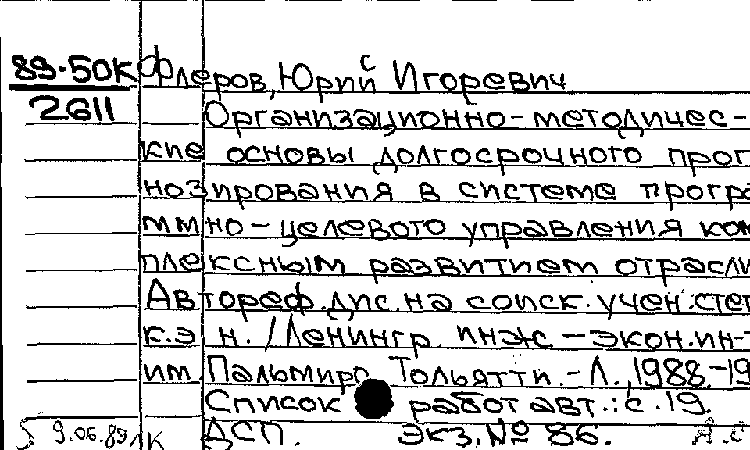 89-50К Флеров, Юрий Игоревич
2611 Организационно-методичес-
кие основы долгосрочного прог
нозирования в системе програ
ммно-целевого управления ком
плексным развитием отрасли
Автореф.дис.на соиск.учен.сте
к.э н. /Ленингр инж-экон.ин-
им. Пальмиро Тольятти.-Л.,1988.-19
Список работ авт.:с.19.
9.06.89 ДСП. Экз.№ 86.